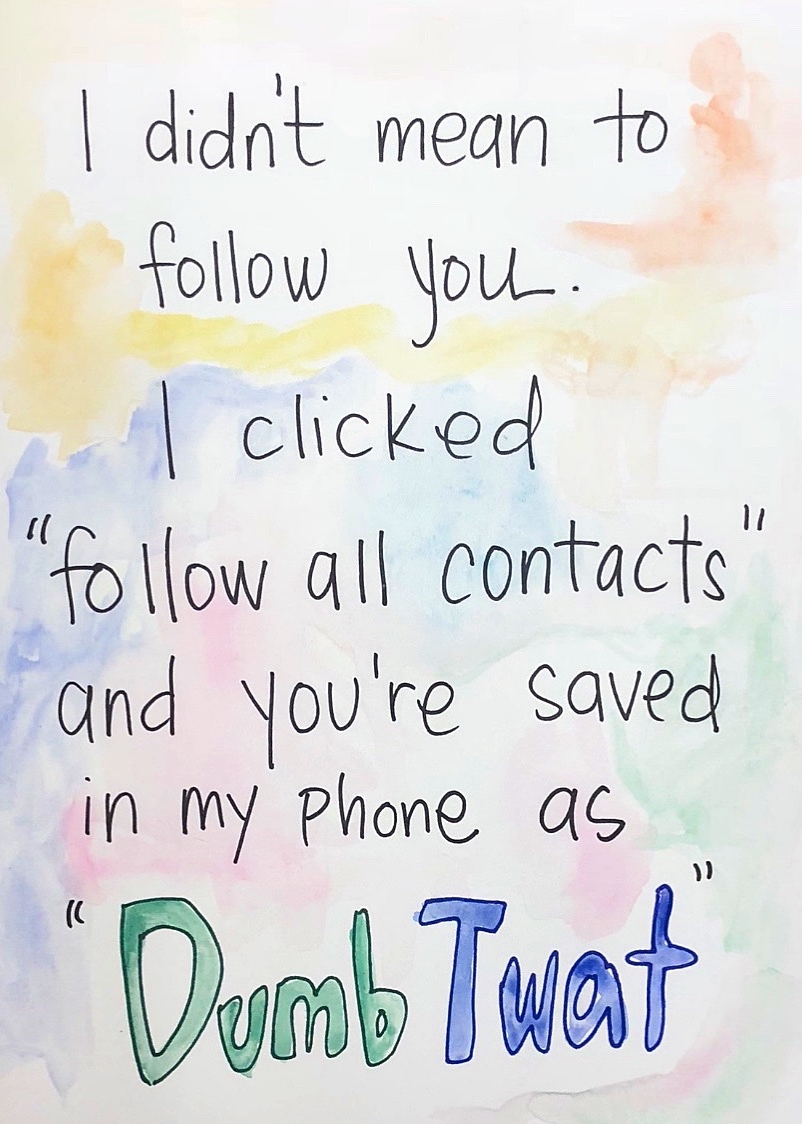 I didn't mean to
follow you.
I clicked
"follow all contacts"
and you're saved
in my phone as
"Dumb Twat"